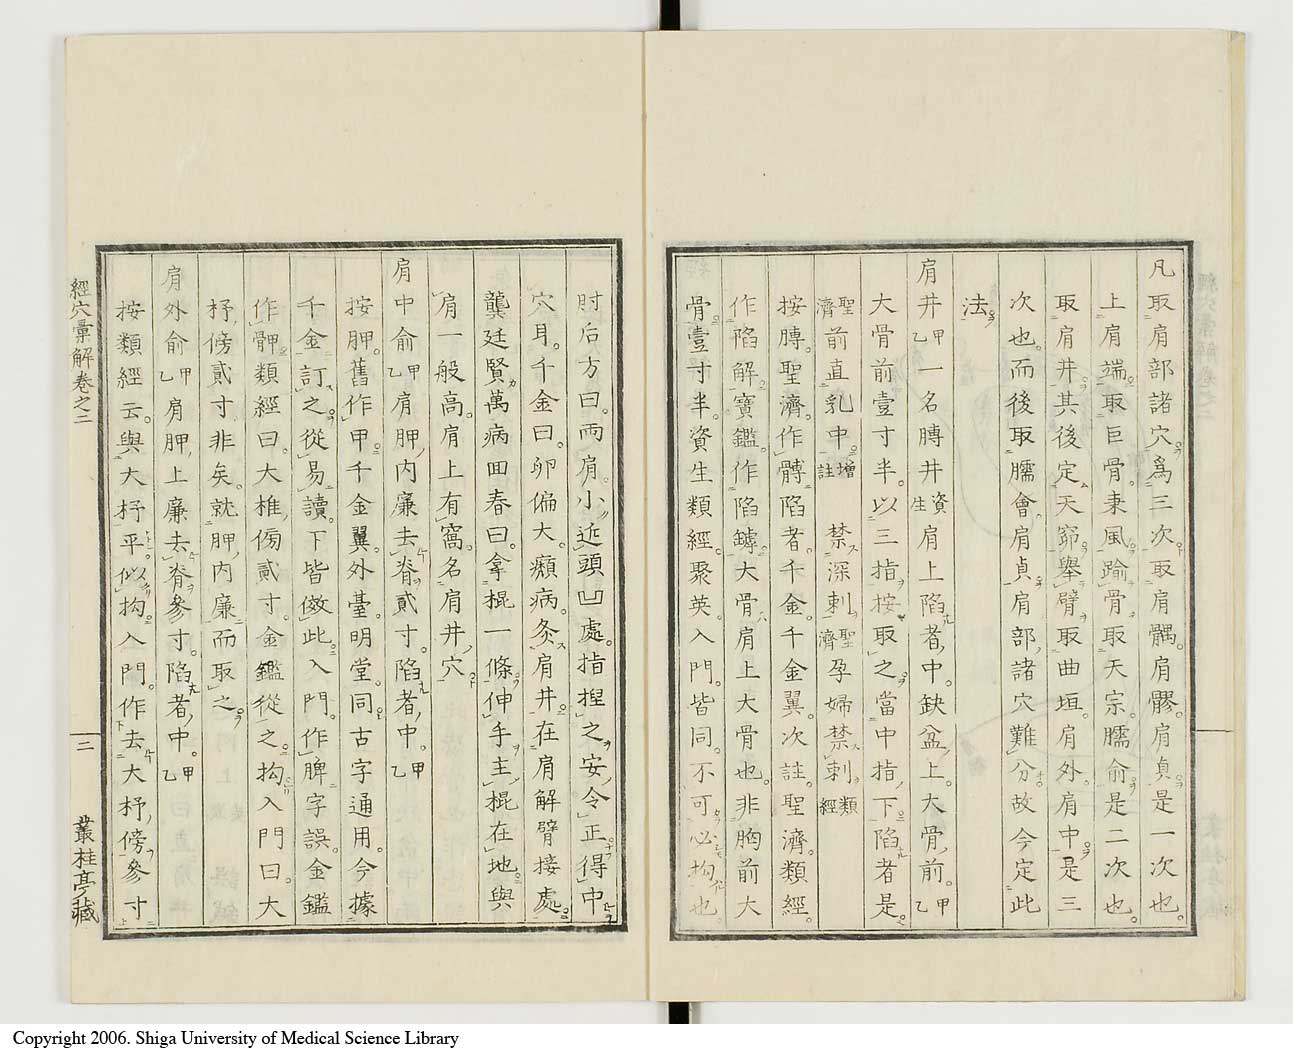 凡取肩部諸穴爲三次取肩髃。肩髎。肩貞是一次也。
上肩端取巨骨秉風踰骨取天宗臑俞是二次也。
取肩井其後定天窌舉臂取曲垣。肩外。肩中是三
次也而後取臑會肩貞肩部諸穴難分故今定此
法
肩井甲乙一名膊井資生肩上陷者中。缺盆上。大骨前。甲乙
大骨前壹寸半。以三指按取之當中指下陷者是。
聖濟前直乳中。增註 禁深刺聖濟孕婦禁刺類經
按膊。聖濟作髆陷者。千金千金翼。次註聖濟類經。
作陷解寶鑑作陷罅。大骨肩上大骨也。非胸前大
骨壹寸半。資生類經。聚英入門。皆同。不可必拘也。
肘后方曰。兩肩小近頭凹處。指揑之安令正得中
穴耳。千金曰。卵偏大。癲病。灸肩井在肩解臂接處。
龔廷賢萬病回春曰。拿棍一條伸手主棍在地與
肩一般高。肩上有窩。名肩井穴
肩中俞甲乙肩胛內廉去脊貳寸。陷者中。甲乙
按胛。舊作甲。千金翼。外臺。明堂。同古字通用。今據
千金訂之從易讀。下皆倣此。入門。作脾字誤。金鑑
作髀類經曰。大椎傍貳寸。金鑑從之拘入門曰。大
杼傍貳寸。非矣。就胛內廉而取之
肩外俞甲乙肩胛上廉去脊參寸。陷者中。甲乙
按類經云。與大杼平似拘。入門。作去大杼傍參寸
經穴彙解卷之二
二
叢桂亭藏
Copyright 2006. Shiga University of Medical Science Library